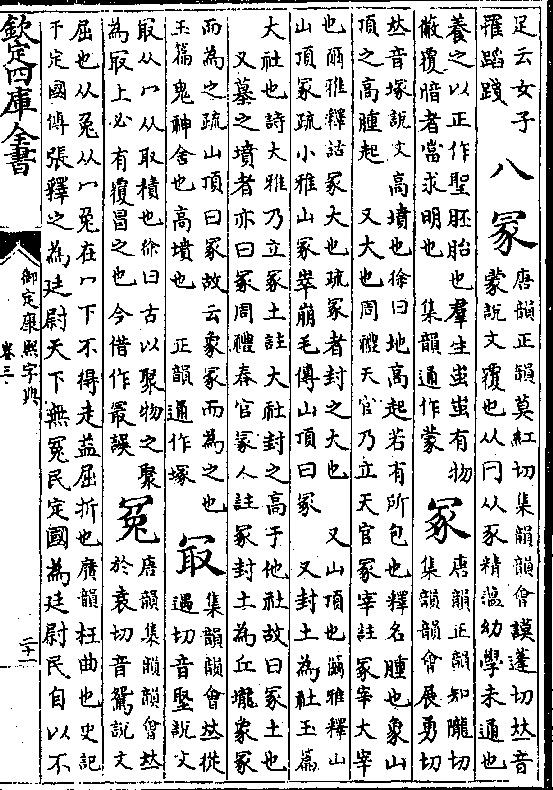 足云女子
羅蹈踐
八
冡
唐韻正韻莫紅切集韻韻會謨蓬切𠀤音
蒙說文覆也从冃从豕精薀幼學未通也
養之以正作聖胚胎也羣生蚩蚩有物
蔽覆暗者當求明也 集韻通作蒙
冢
唐韻正韻知隴切
集韻韻會展勇切
𠀤音塚說文高墳也徐曰地高起若有所包也釋名腫也象山
頂之高腫起 又大也周禮天官乃立天官冢宰註冢宰大宰
也爾雅釋詁冢大也疏冢者封之大也 又山頂也爾雅釋山
山頂冢疏小雅山冢崒崩毛傳山頂曰冢 又封土為社玉篇
大社也詩大雅乃立冢土註大社封之高于他社故曰冢土也
又墓之墳者亦曰冢周禮春官冢人註冢封土為丘壠象冢
而為之疏山頂曰冢故云象冢而為之也
玉篇鬼神舍也高墳也 正韻通作塚
冣
集韻韻會𠀤從
遇切音堅說文
冣从冖从取積也徐曰古以聚物之聚
為冣上必有覆冒之也今借作叢誤
冤
唐韻集韻韻會𠀤
於袁切音鴛說文
屈也从兔从冖兔在冖下不得走益屈折也廣韻枉曲也史記
于定國傳張釋之為廷尉天下無冤民定國為廷尉民自以不
欽定四庫全書
御定康熙字典
卷三
二十一